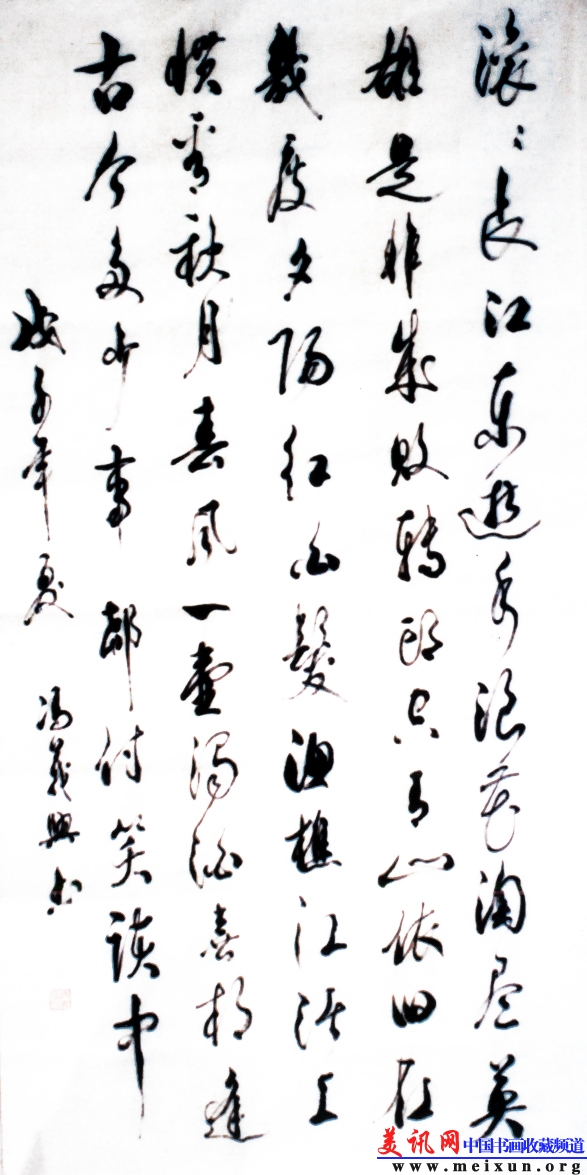 滚〻长江东逝水浪花淘尽英
雄是非成败转头空青山依旧在
几度夕阳红白髮渔樵江渚上
惯看秋月春风一壶浊酒喜相逢
古今多少事都付笑谈中
戊子年夏 冯義興书
美讯网 中国书画收藏频道
www.meixun.org